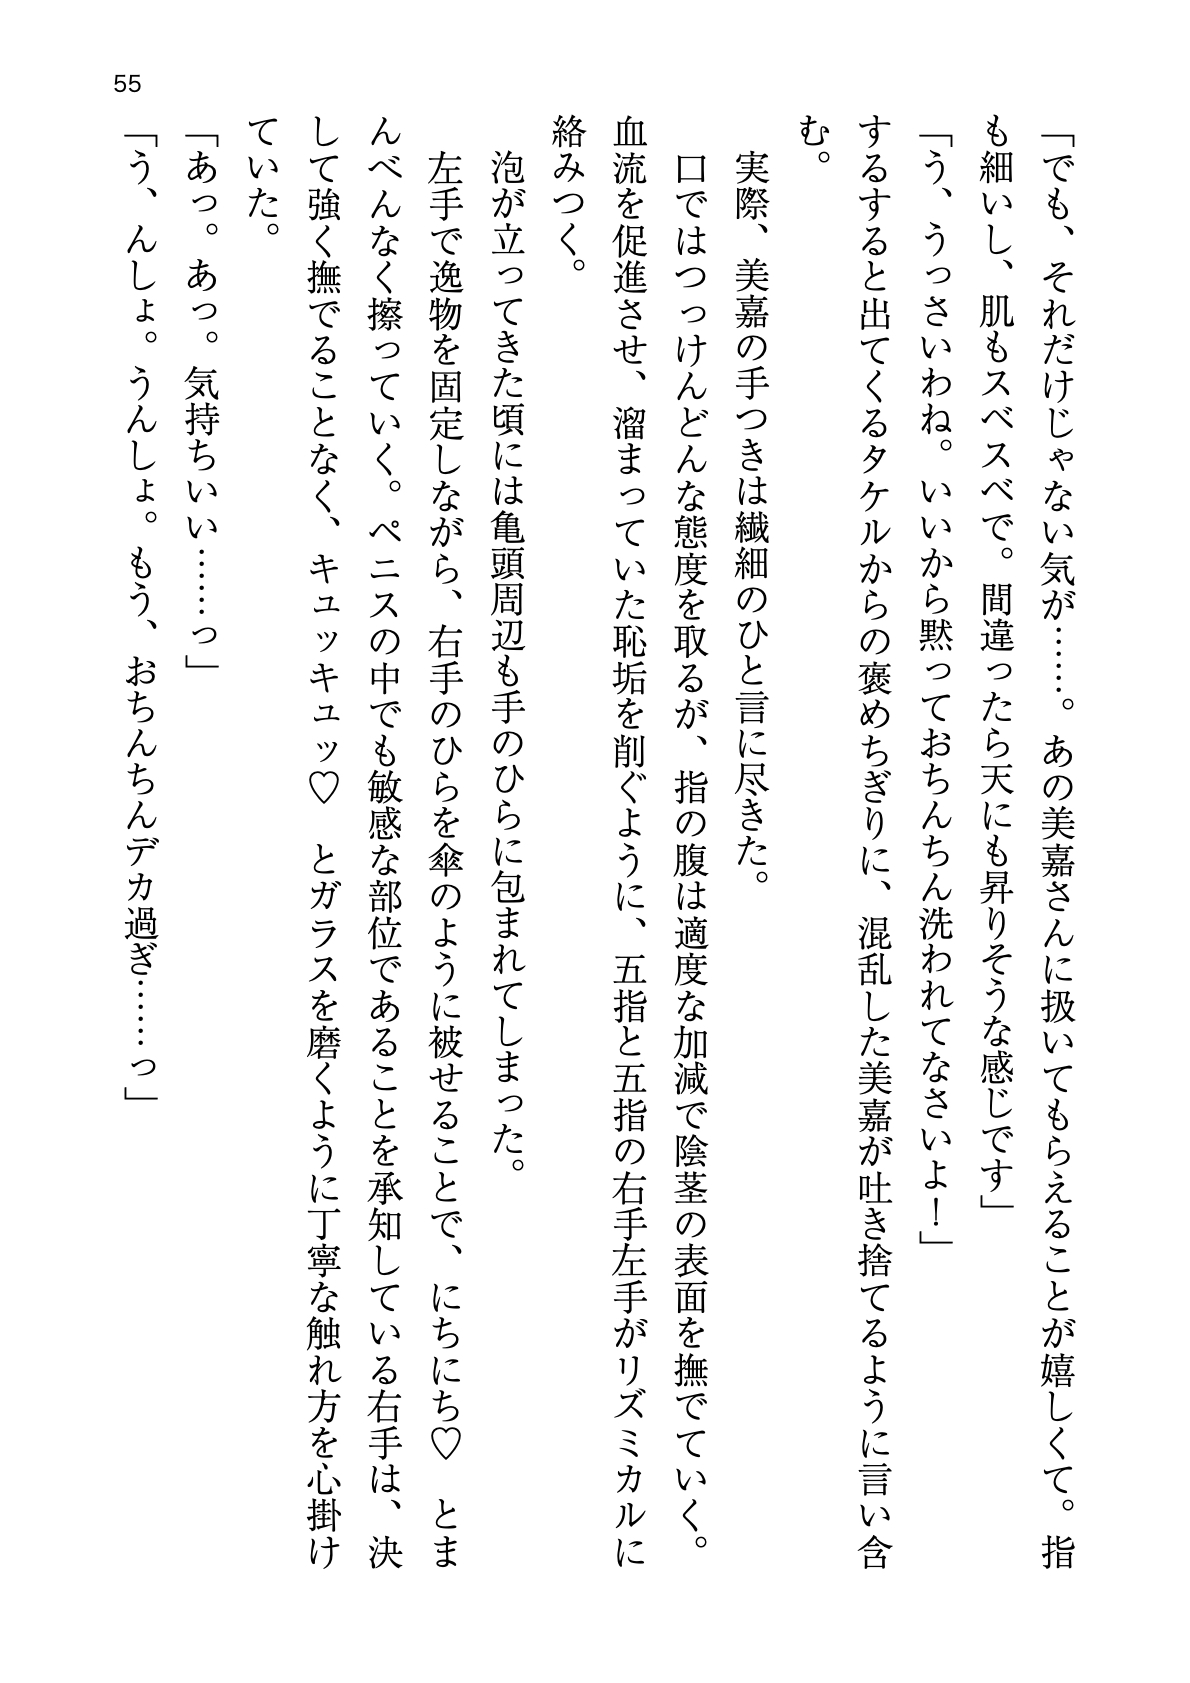 55
「でも、それだけじゃない気が……。あの美嘉さんに扱いてもらえることが嬉しくて。指
も細いし、肌もスベスベで。間違ったら天にも昇りそうな感じです」
「う、うっさいわね。いいから黙っておちんちん洗われてなさいよ！」
するすると出てくるタケルからの褒めちぎりに、混乱した美嘉が吐き捨てるように言い含
む。
　実際、美嘉の手つきは繊細のひと言に尽きた。
　口ではつっけんどんな態度を取るが、指の腹は適度な加減で陰茎の表面を撫でていく。
血流を促進させ、溜まっていた恥垢を削ぐように、五指と五指の右手左手がリズミカルに
絡みつく。
　泡が立ってきた頃には亀頭周辺も手のひらに包まれてしまった。
　左手で逸物を固定しながら、右手のひらを傘のように被せることで、にちにち♡　とま
んべんなく擦っていく。ペニスの中でも敏感な部位であることを承知している右手は、決
して強く撫でることなく、キュッキュッ♡　とガラスを磨くように丁寧な触れ方を心掛け
ていた。
「あっ。あっ。気持ちいい……っ」
「う、んしょ。うんしょ。もう、おちんちんデカ過ぎ……っ」